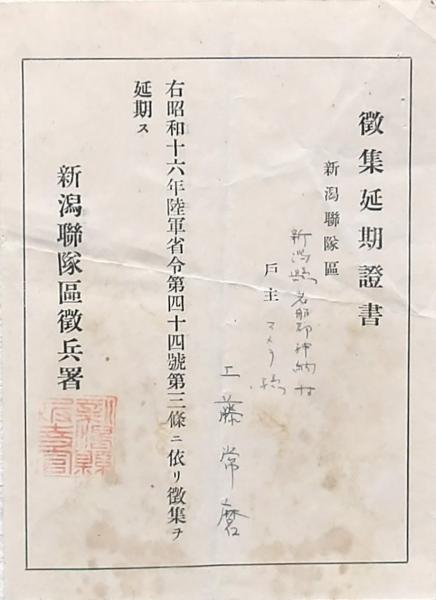 徵集延期證書
新潟聯隊區
新潟縣岩船郡神納村
戶主
工藤常麿
右昭和十六年陸軍省令第四十四號第三條ニ依リ徵集ヲ
延期ス
新潟聯隊區徵兵署